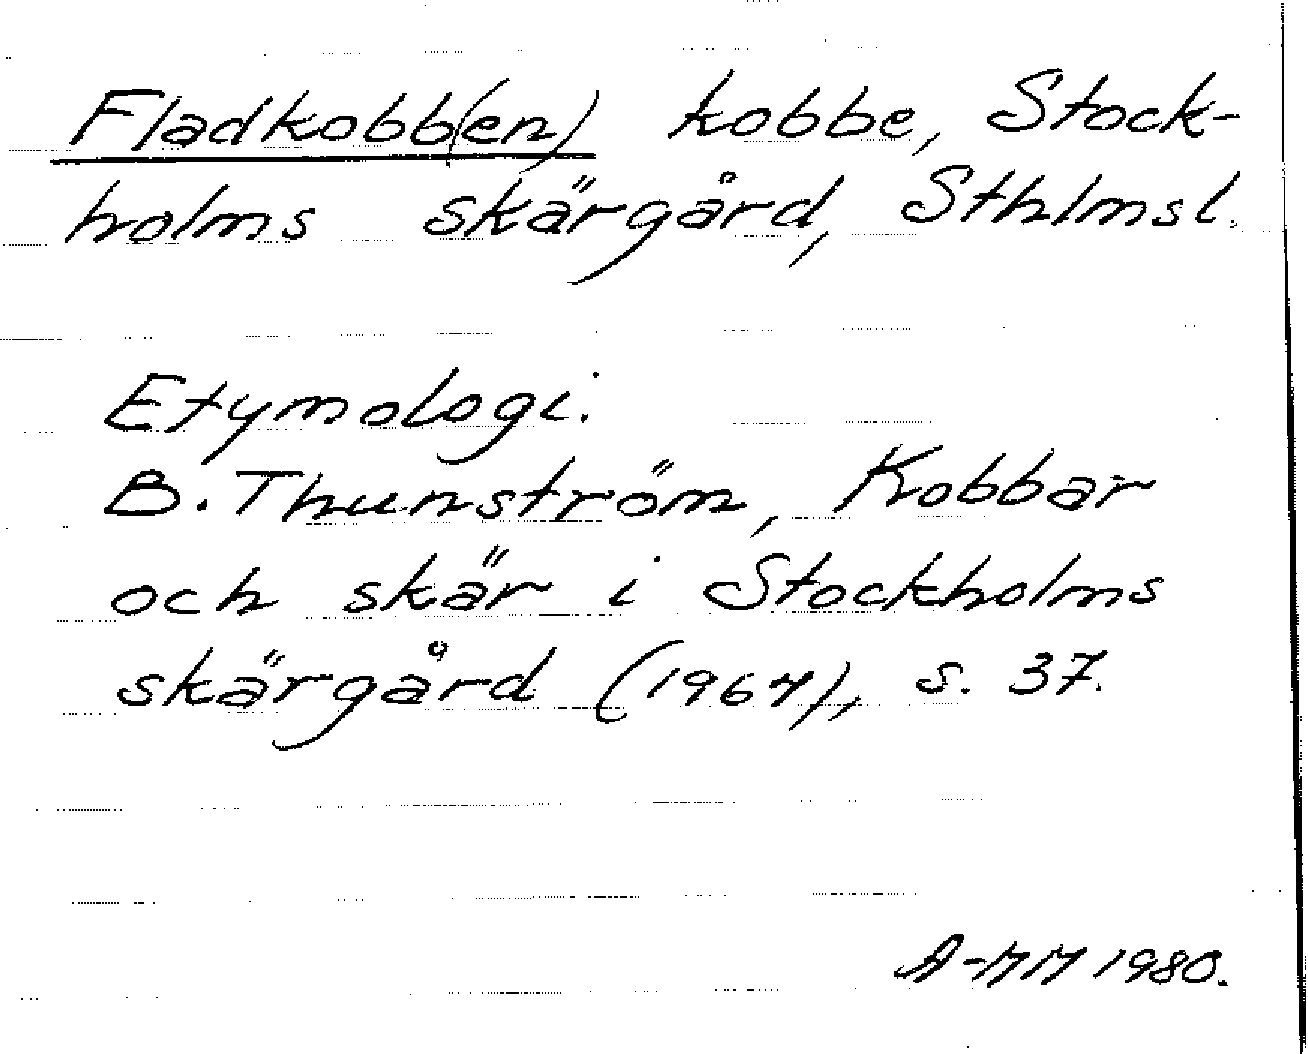 Fladkobb(en) kobbe, Stock-
holms skärgård, Sthlmsl.
Etymologi.
B. Thunström, Kobbar
och skär i Stockholms
skärgård (1964), s. 37.
A-MM 1980.